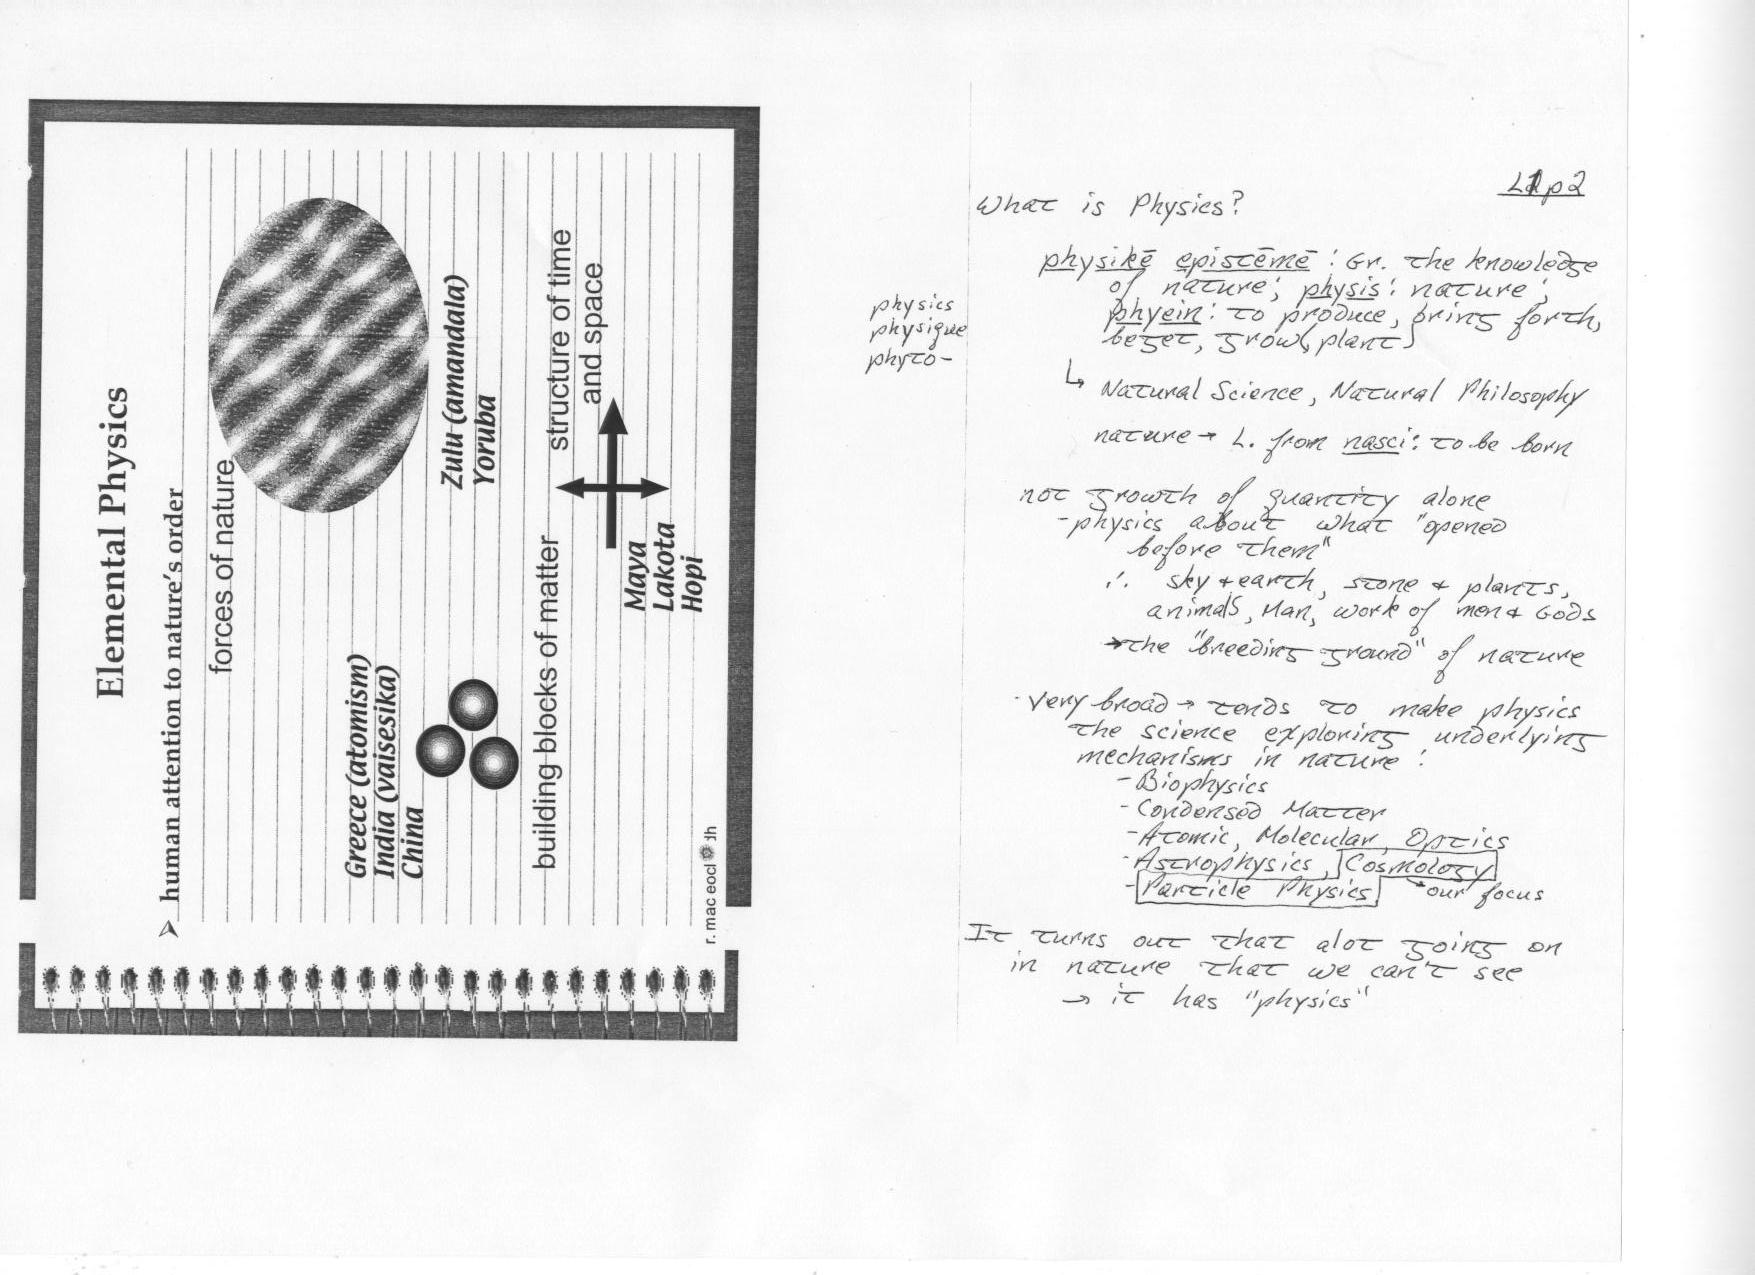 Elemental Physics
human attention to nature's order
forces of nature
Zulu (amandala)
Yoruba
Greece (atomism)
India (vaisesika)
China
building blocks of matter
structure of time
and space
Maya
Lakota
Hopi
r. mac eocl
L1 p2
What is Physics?
physikē epistēmē : Gr. the knowledge
of nature; physis: nature;
phyein: to produce, bring forth,
beget, grow (plant)
physics
physique
phyto-
↳ Natural Science, Natural Philosophy
nature → L. from nasci: to be born
not growth of quantity alone
- physics about what "opened
before them"
∴ sky + earth, stone + plants,
animals, Man, work of men + Gods
→ the "breeding ground" of nature
· very broad → tends to make physics
the science exploring underlying
mechanisms in nature :
- Biophysics
- Condensed Matter
- Atomic, Molecular, Optics
- Astrophysics, Cosmology
- Particle Physics our focus
It turns out that alot going on
in nature that we can't see
→ it has "physics"